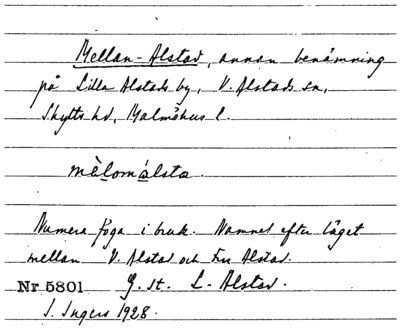 Mellan-Alstad, annan benämning
på Lilla Alstads by, V. Alstads sn,
Skytts hd, Malmöhus l.
mèlomálsta.
Numera föga i bruk. Namnet efter läget
mellan V. Alstad och Fru Alstad.
Nr 5801 G. st. L-Alstad.
I. Ingers 1928.